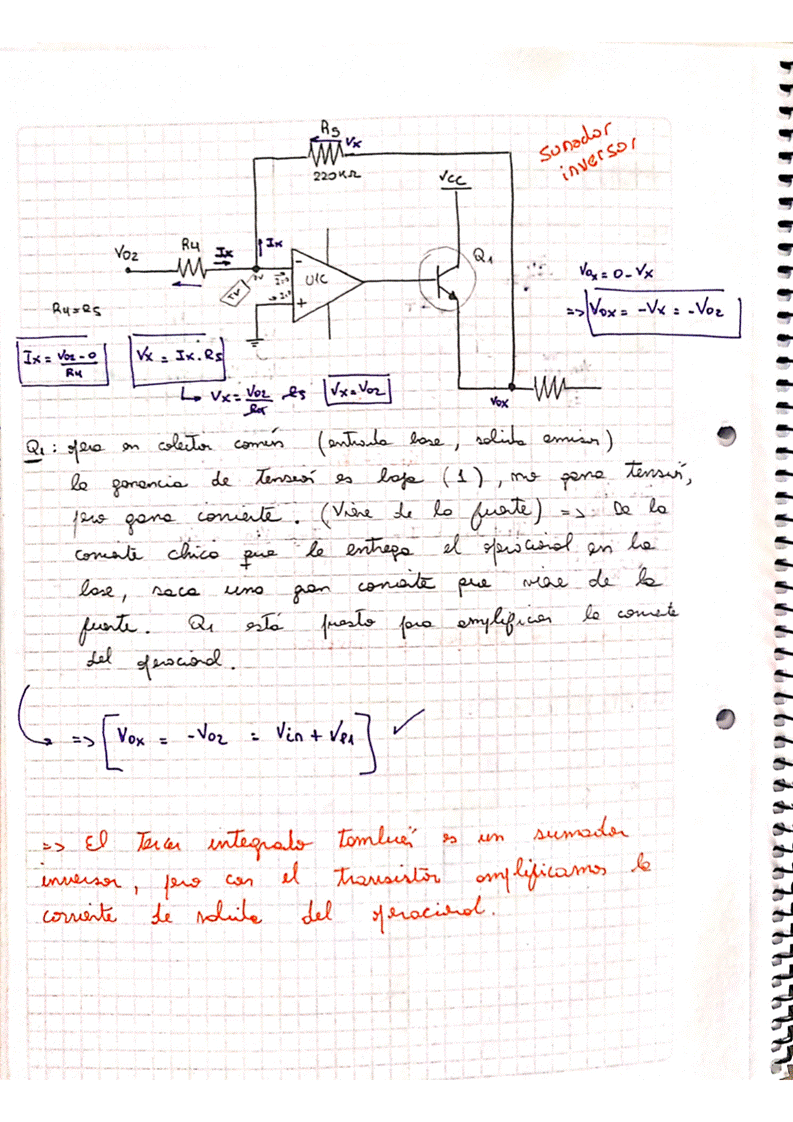 R5
Vx
sumador
inversor
220KΩ
VCC
VO2
R4
Ix
Ix
Q1
-
U1C
+
TV
R4=R5
VOx = 0 - Vx
=> VOX = -Vx = -VO2
Ix = VO2 - 0 / R4
Vx = Ix . R5
↳ Vx = VO2 / R4 R5 Vx = VO2
VOX
Q1: opera en colector común (entrada base, salida emisor)
la ganancia de tensión es baja (1), no gana tensión,
pero gana corriente. (Viene de la fuente) => De la
corriente chica que le entrega el operacional en la
base, saca una gran corriente que viene de la
fuente. Q1 está puesto para amplificar la corriente
del operacional.
=> [VOX = -VO2 = Vin + VP1] ✓
=> El Tercer integrado también es un sumador
inversor, pero con el transistor amplificamos la
corriente de salida del operacional.